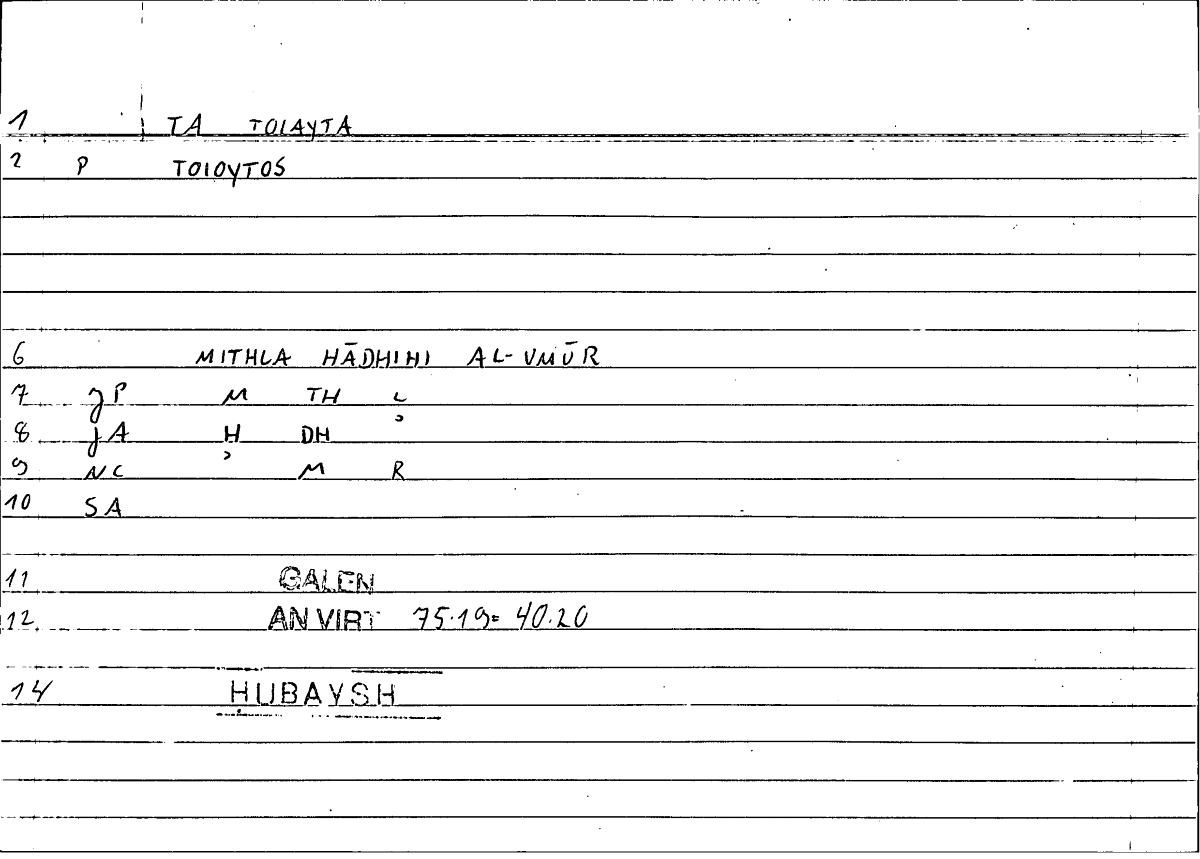 1 TA TOIAYTA
2 P TOIOYTOS
6 MITHLA HĀDHIHI AL-UMŪR
7 JP M TH L
8 JA H DH ʾ
9 NC ʾ M R
10 SA
11 GALEN
12. AN VIRT 75.19= 40.20
14 ḤUBAYSH